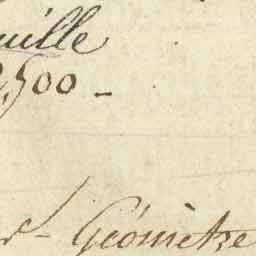 uille
2,500 -
r - Géomètre